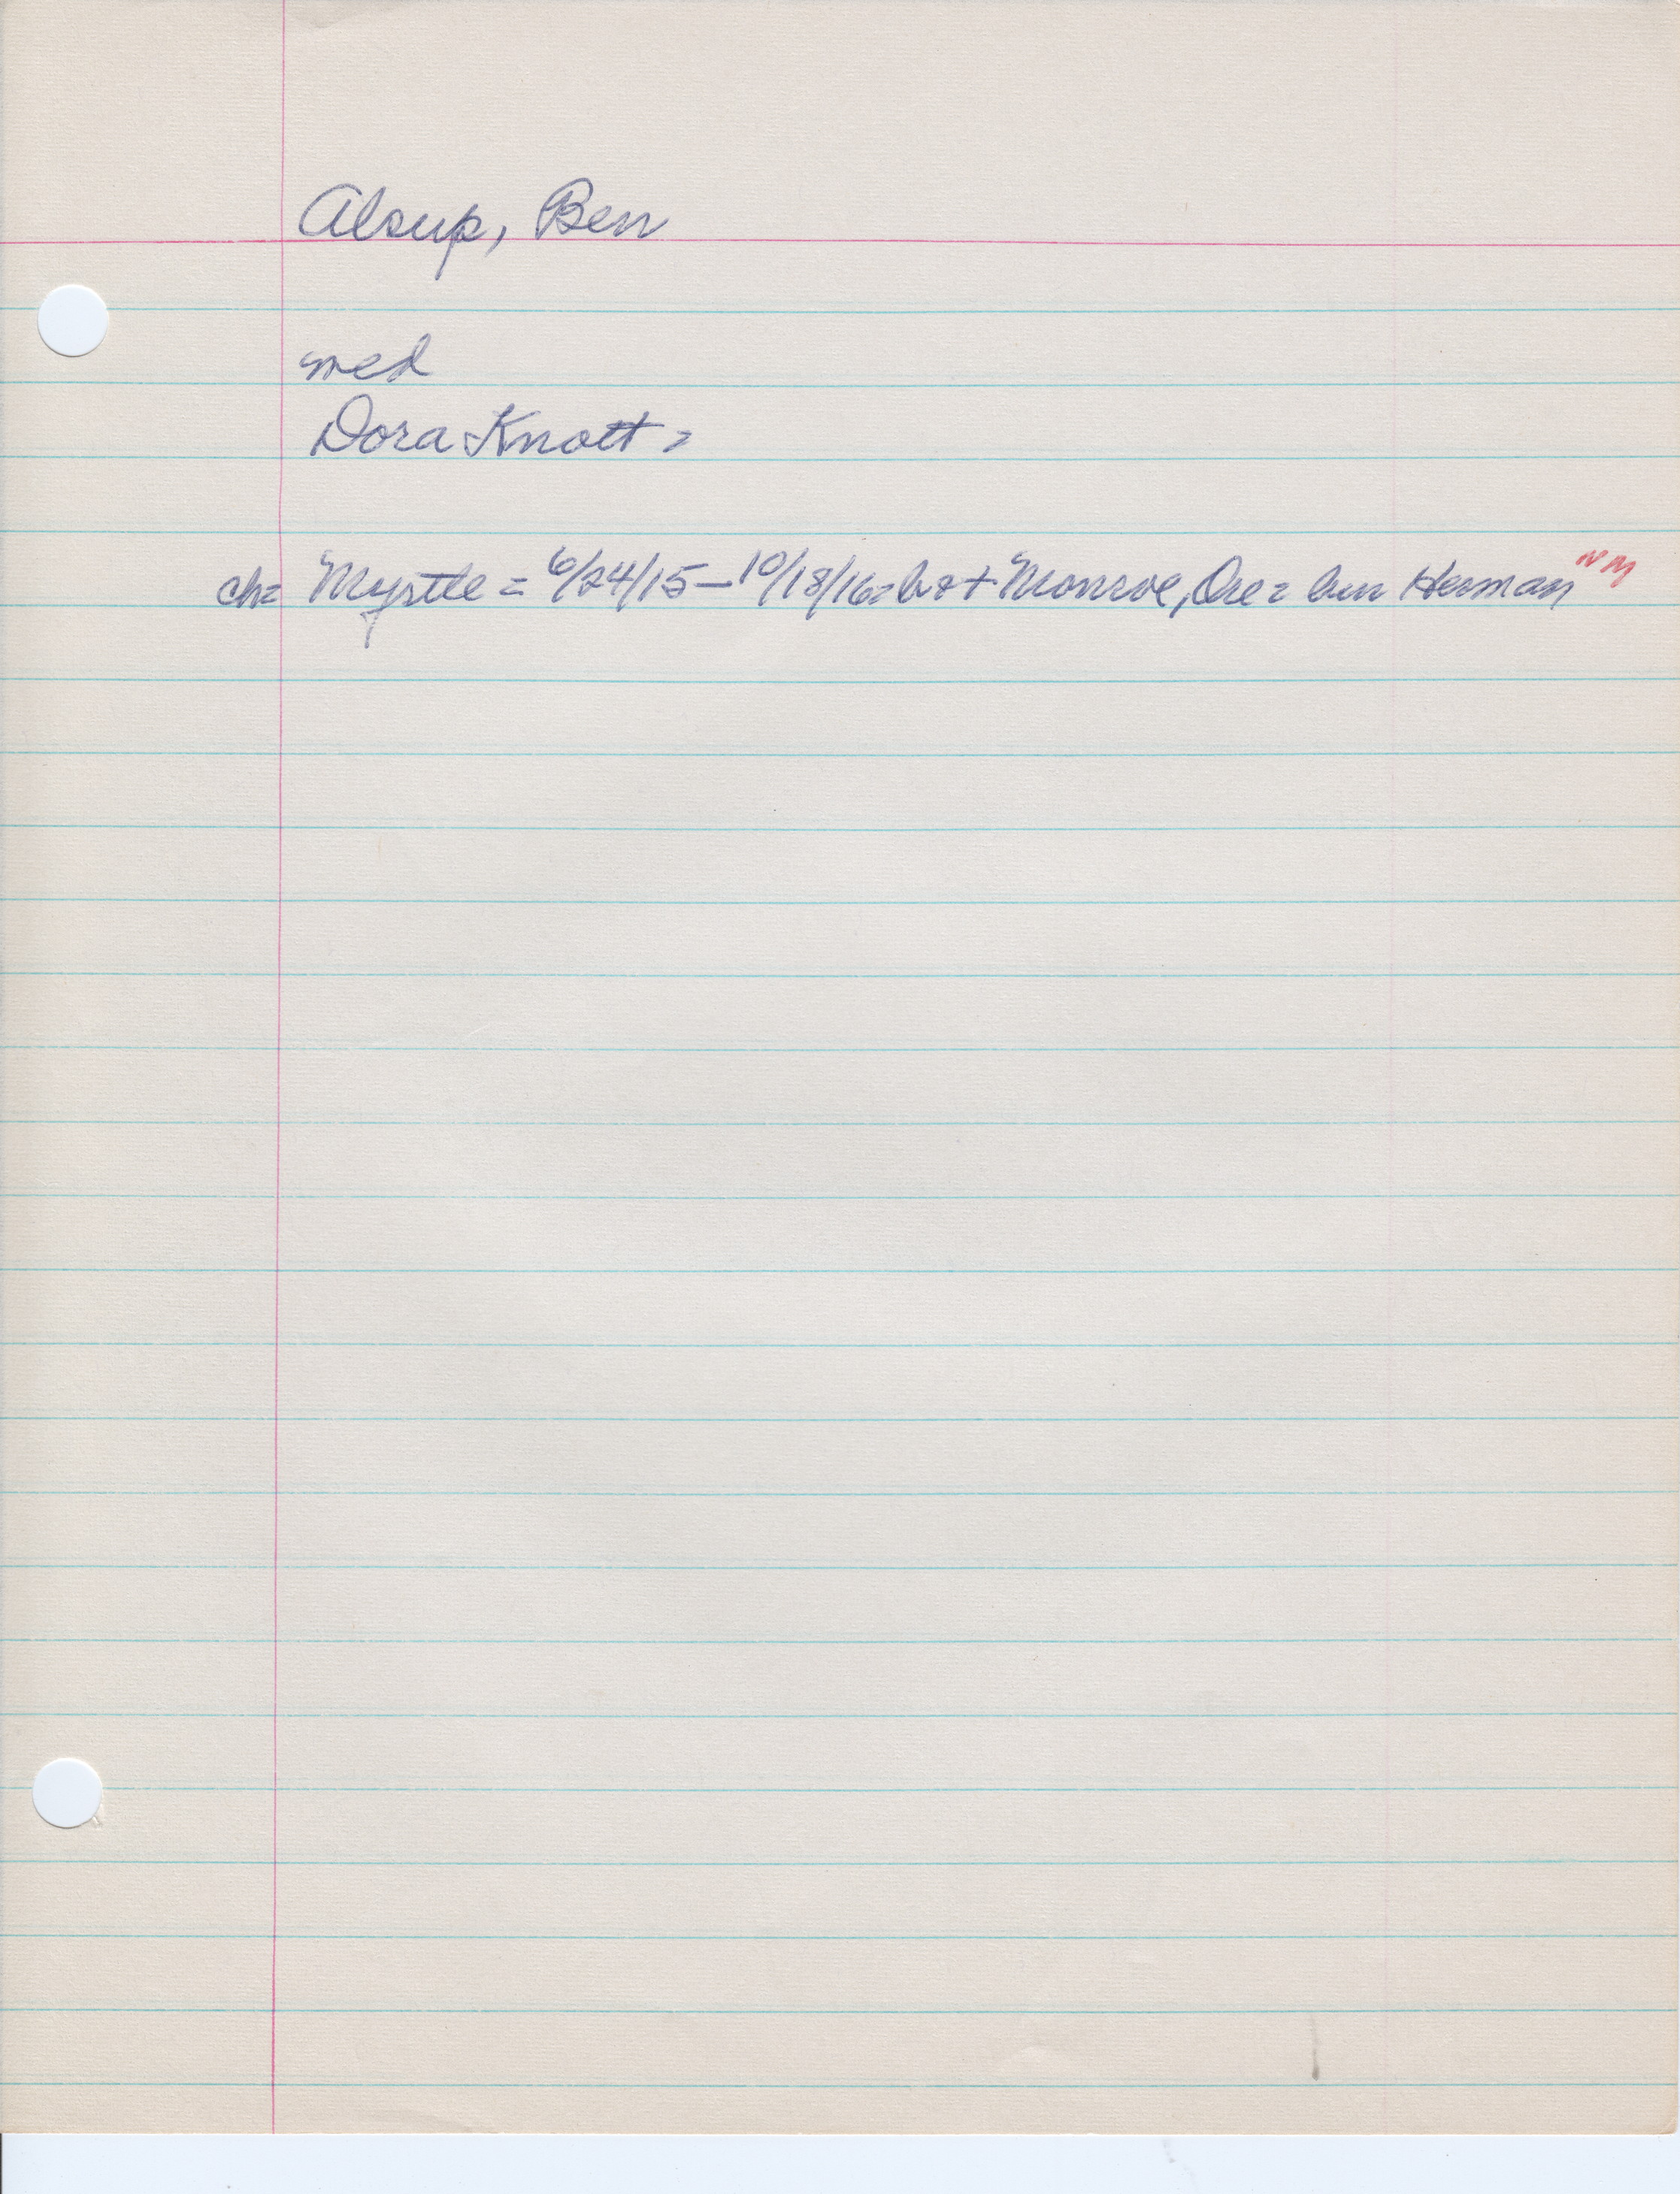 Alsup, Ben
med
Dora Knott =
ch= Myrtle = 6/24/15 – 10/18/16 = b + Monroe, Ore = bur Herman "NM